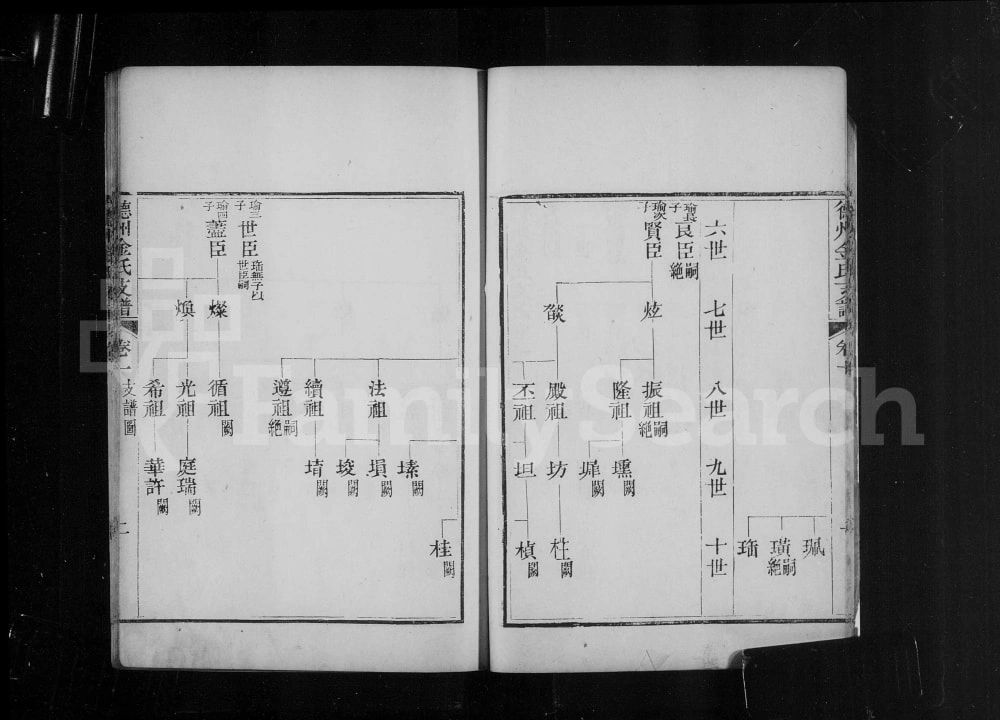 珮
璜 嗣絶
珤
六世
七世
八世
九世
十世
瑜長子
良臣 嗣絶
瑜次子
賢臣
炫
燄
振祖 嗣絶
隆祖
殿祖
丕祖
壎 闕
墀 闕
坊
坦
杜 闕
楨 闕
瑜三子
世臣 珤無子以世臣嗣
瑜四子
藎臣
燦
煥
法祖
續祖
遵祖 嗣絶
循祖 闕
光祖
希祖
塤 闕
埈 闕
堉 闕
庭瑞 闕
華許 闕
桂 闕
德州金氏支譜
卷一
支譜圖
二
FamilySearch